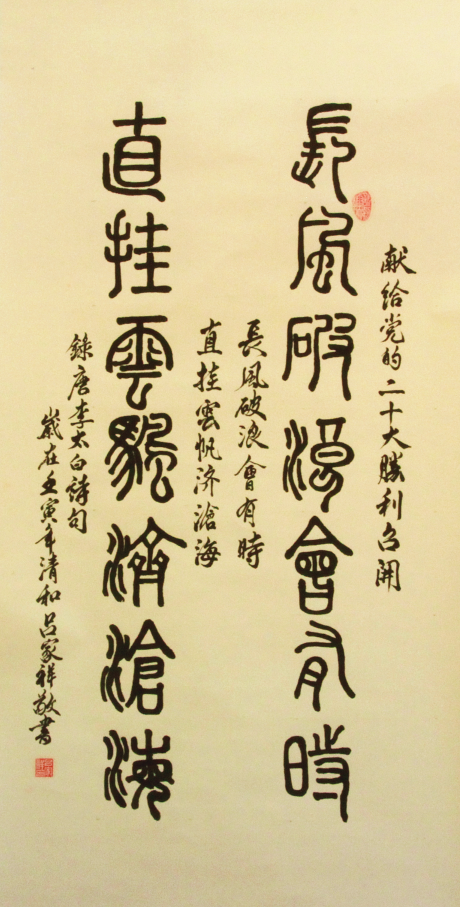 献给党的二十大勝利召開
長風破浪會有時
長風破浪會有時
直挂雲帆济滄海
直挂雲颿濟滄海
錄唐李太白詩句
歲在壬寅年清和吕家祥敬書